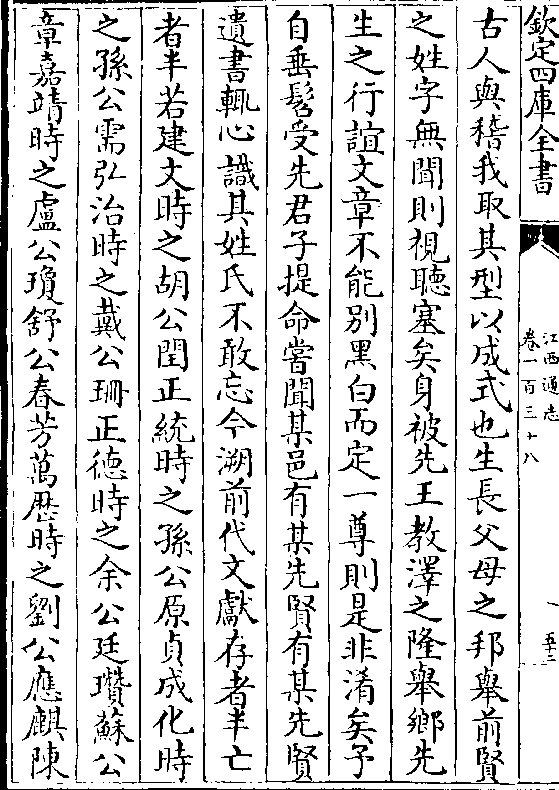 欽定四庫全書
江西通志
卷一百三十八
五十三
古人與稽我取其型以成式也生長父母之邦舉前賢
之姓字無聞則視聽塞矣身被先王教澤之隆舉鄉先
生之行誼文章不能别黑白而定一尊則是非淆矣予
自垂髫受先君子提命嘗聞某邑有某先賢有某先賢
遺書輒心識其姓氏不敢忘今溯前代文獻存者半亡
者半若建文時之胡公閏正統時之孫公原貞成化時
之孫公需弘治時之戴公珊正德時之余公廷瓚蘇公
章嘉靖時之盧公瓊舒公春芳萬厯時之劉公應麒陳